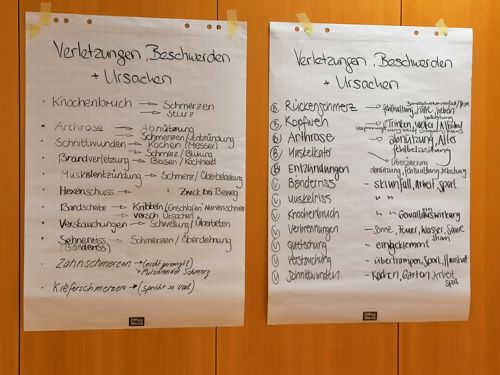 Verletzungen, Beschwerden
+ Ursachen
Knochenbruch → Schmerzen
→ Sturz
Arthrose → abnützung
Schmerzen/Entzündung
Schnittwunden → Kochen (Messer)
Schmerz/Blutung
Brandverletzung → Blasen/Kochherd
Muskelentzündung → Schmerz/Überbelastung
Hexenschuss → Zwick bei Beweg
Bandscheibe → Kribbeln (Einschlafen Nervenschmerz
→ versch. Ursachen
Verstauchungen → Schwellung/Übertreten
Sehnenriss → Schmerzen/Überdehnung
(Bänderriss)
Zahnschmerzen → (nicht geimpft)
Pulsierender Schmerz
Kieferschmerzen → (spricht so viel)
Office
World
Verletzungen, Beschwerden
+ Ursachen
Rückenschmerz → fehlhaltung, Kälte, heben
Kopfweh → (Trinken, Wetter, Alkohol
Arthrose → abnützung, Alter
fehlbelastung
Muskelkater → Überzuckerung
Entzündungen → abnützung, fehlhaltung, belastung
Bänderriss - skiunfall, arbeit, sport
Muskelriss - " "
Knochenbruch - " " Gewalteinwirkung
Verbrennungen - Sonne, Feuer, Wasser, Säure
Strom
quetschung - eingeklemmt
Verstauchung - übertrampen, Sport
Schnittwunden - Kochen, Garten, Arbeit
Sport
Office
World